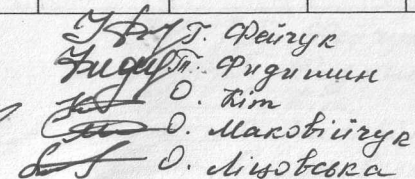 Г. Фейчук
Т. Фидишин
О. Кіт
О. Маковійчук
О. Ліщовська